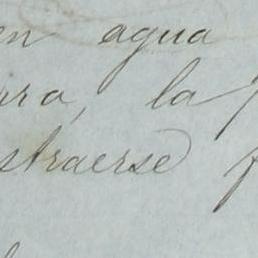 en agua
ra, la
straerse